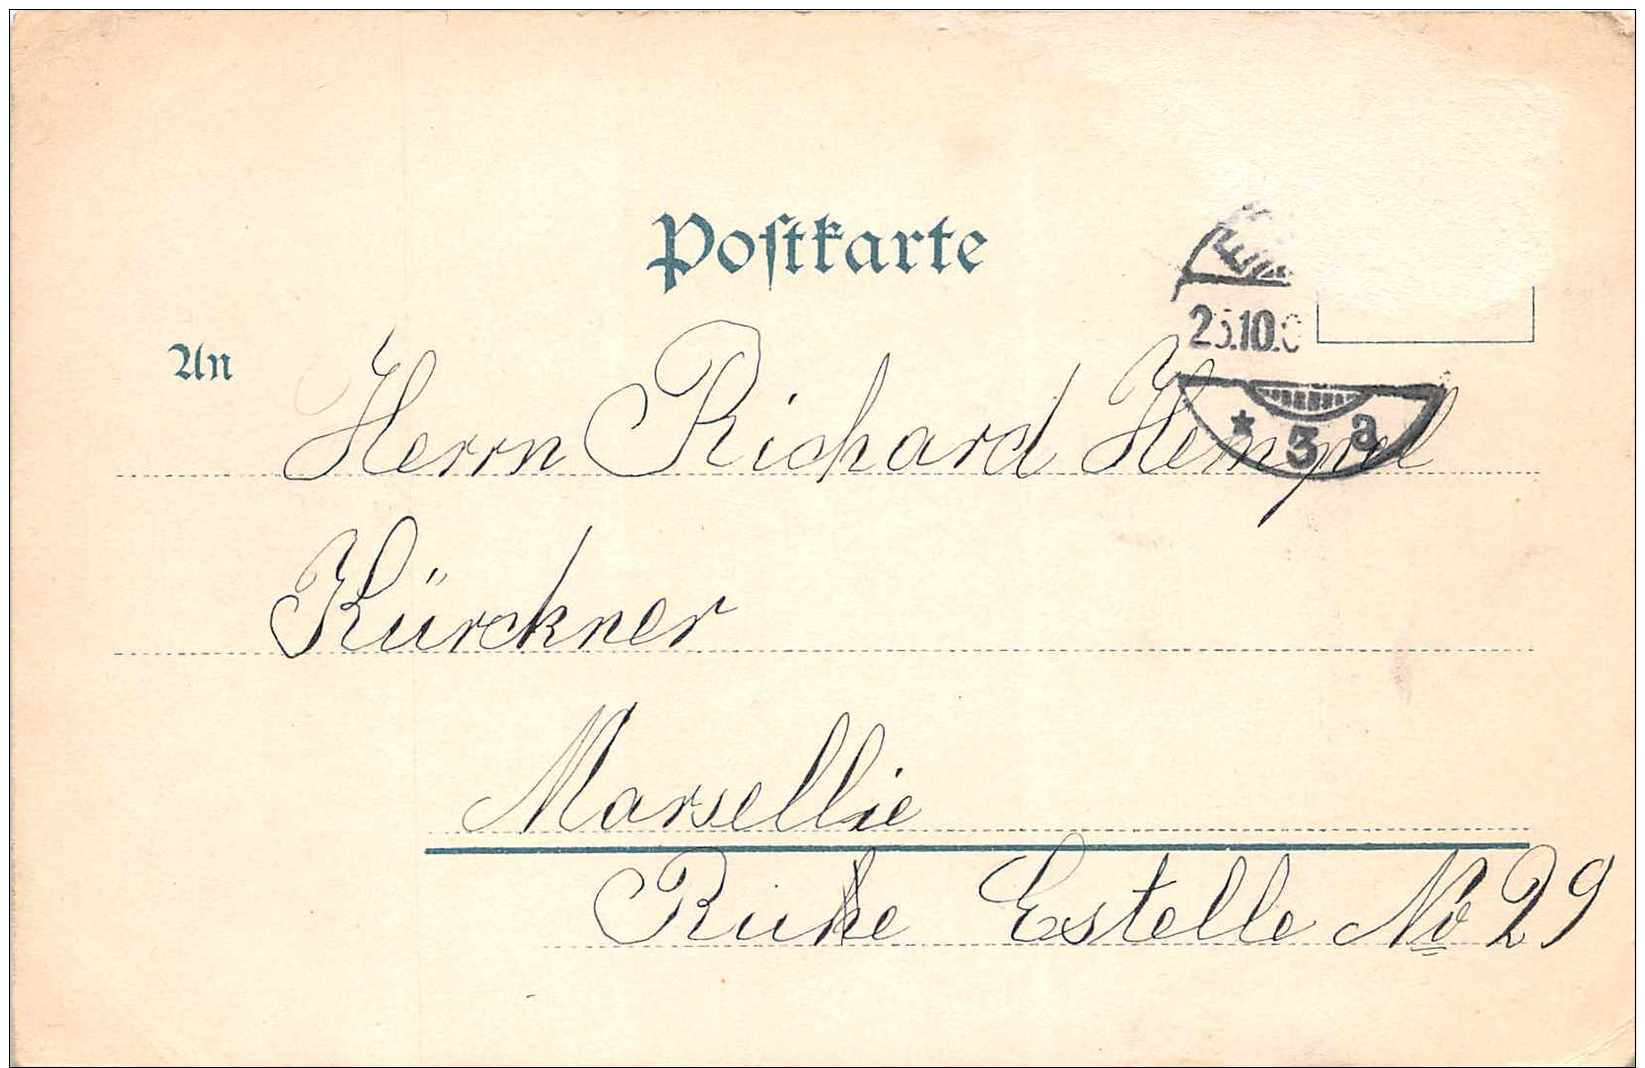 Postkarte
25.10.
An
Herrn Richard Hempel
* 3 a
Kürckner
Marsellie
Ruhe Estelle No 29